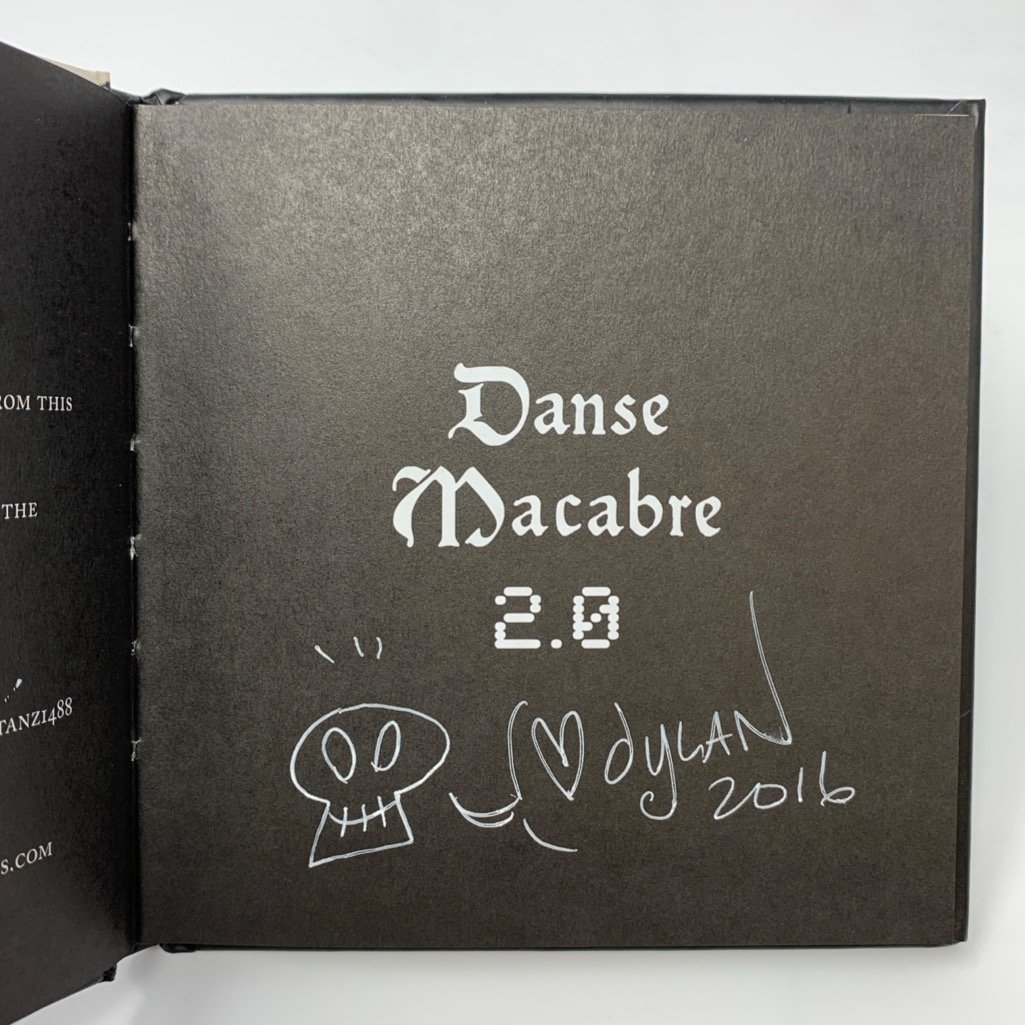 ROM THIS
THE
TANZ1488
S.COM
Danse
Macabre
2.0
dylan
2016